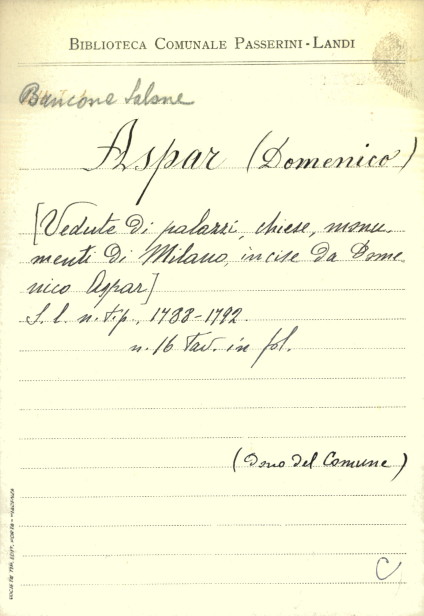 BIBLIOTECA COMUNALE PASSERINI-LANDI
Bancone Salone
Aspar (Domenico)
[Vedute di palazzi, chiese, monu-
menti di Milano, incise da Dome-
nico Aspar]
S. l. n. t. p. 1788-1792
n. 16 Tav. in fol.
(Dono del Comune)
C